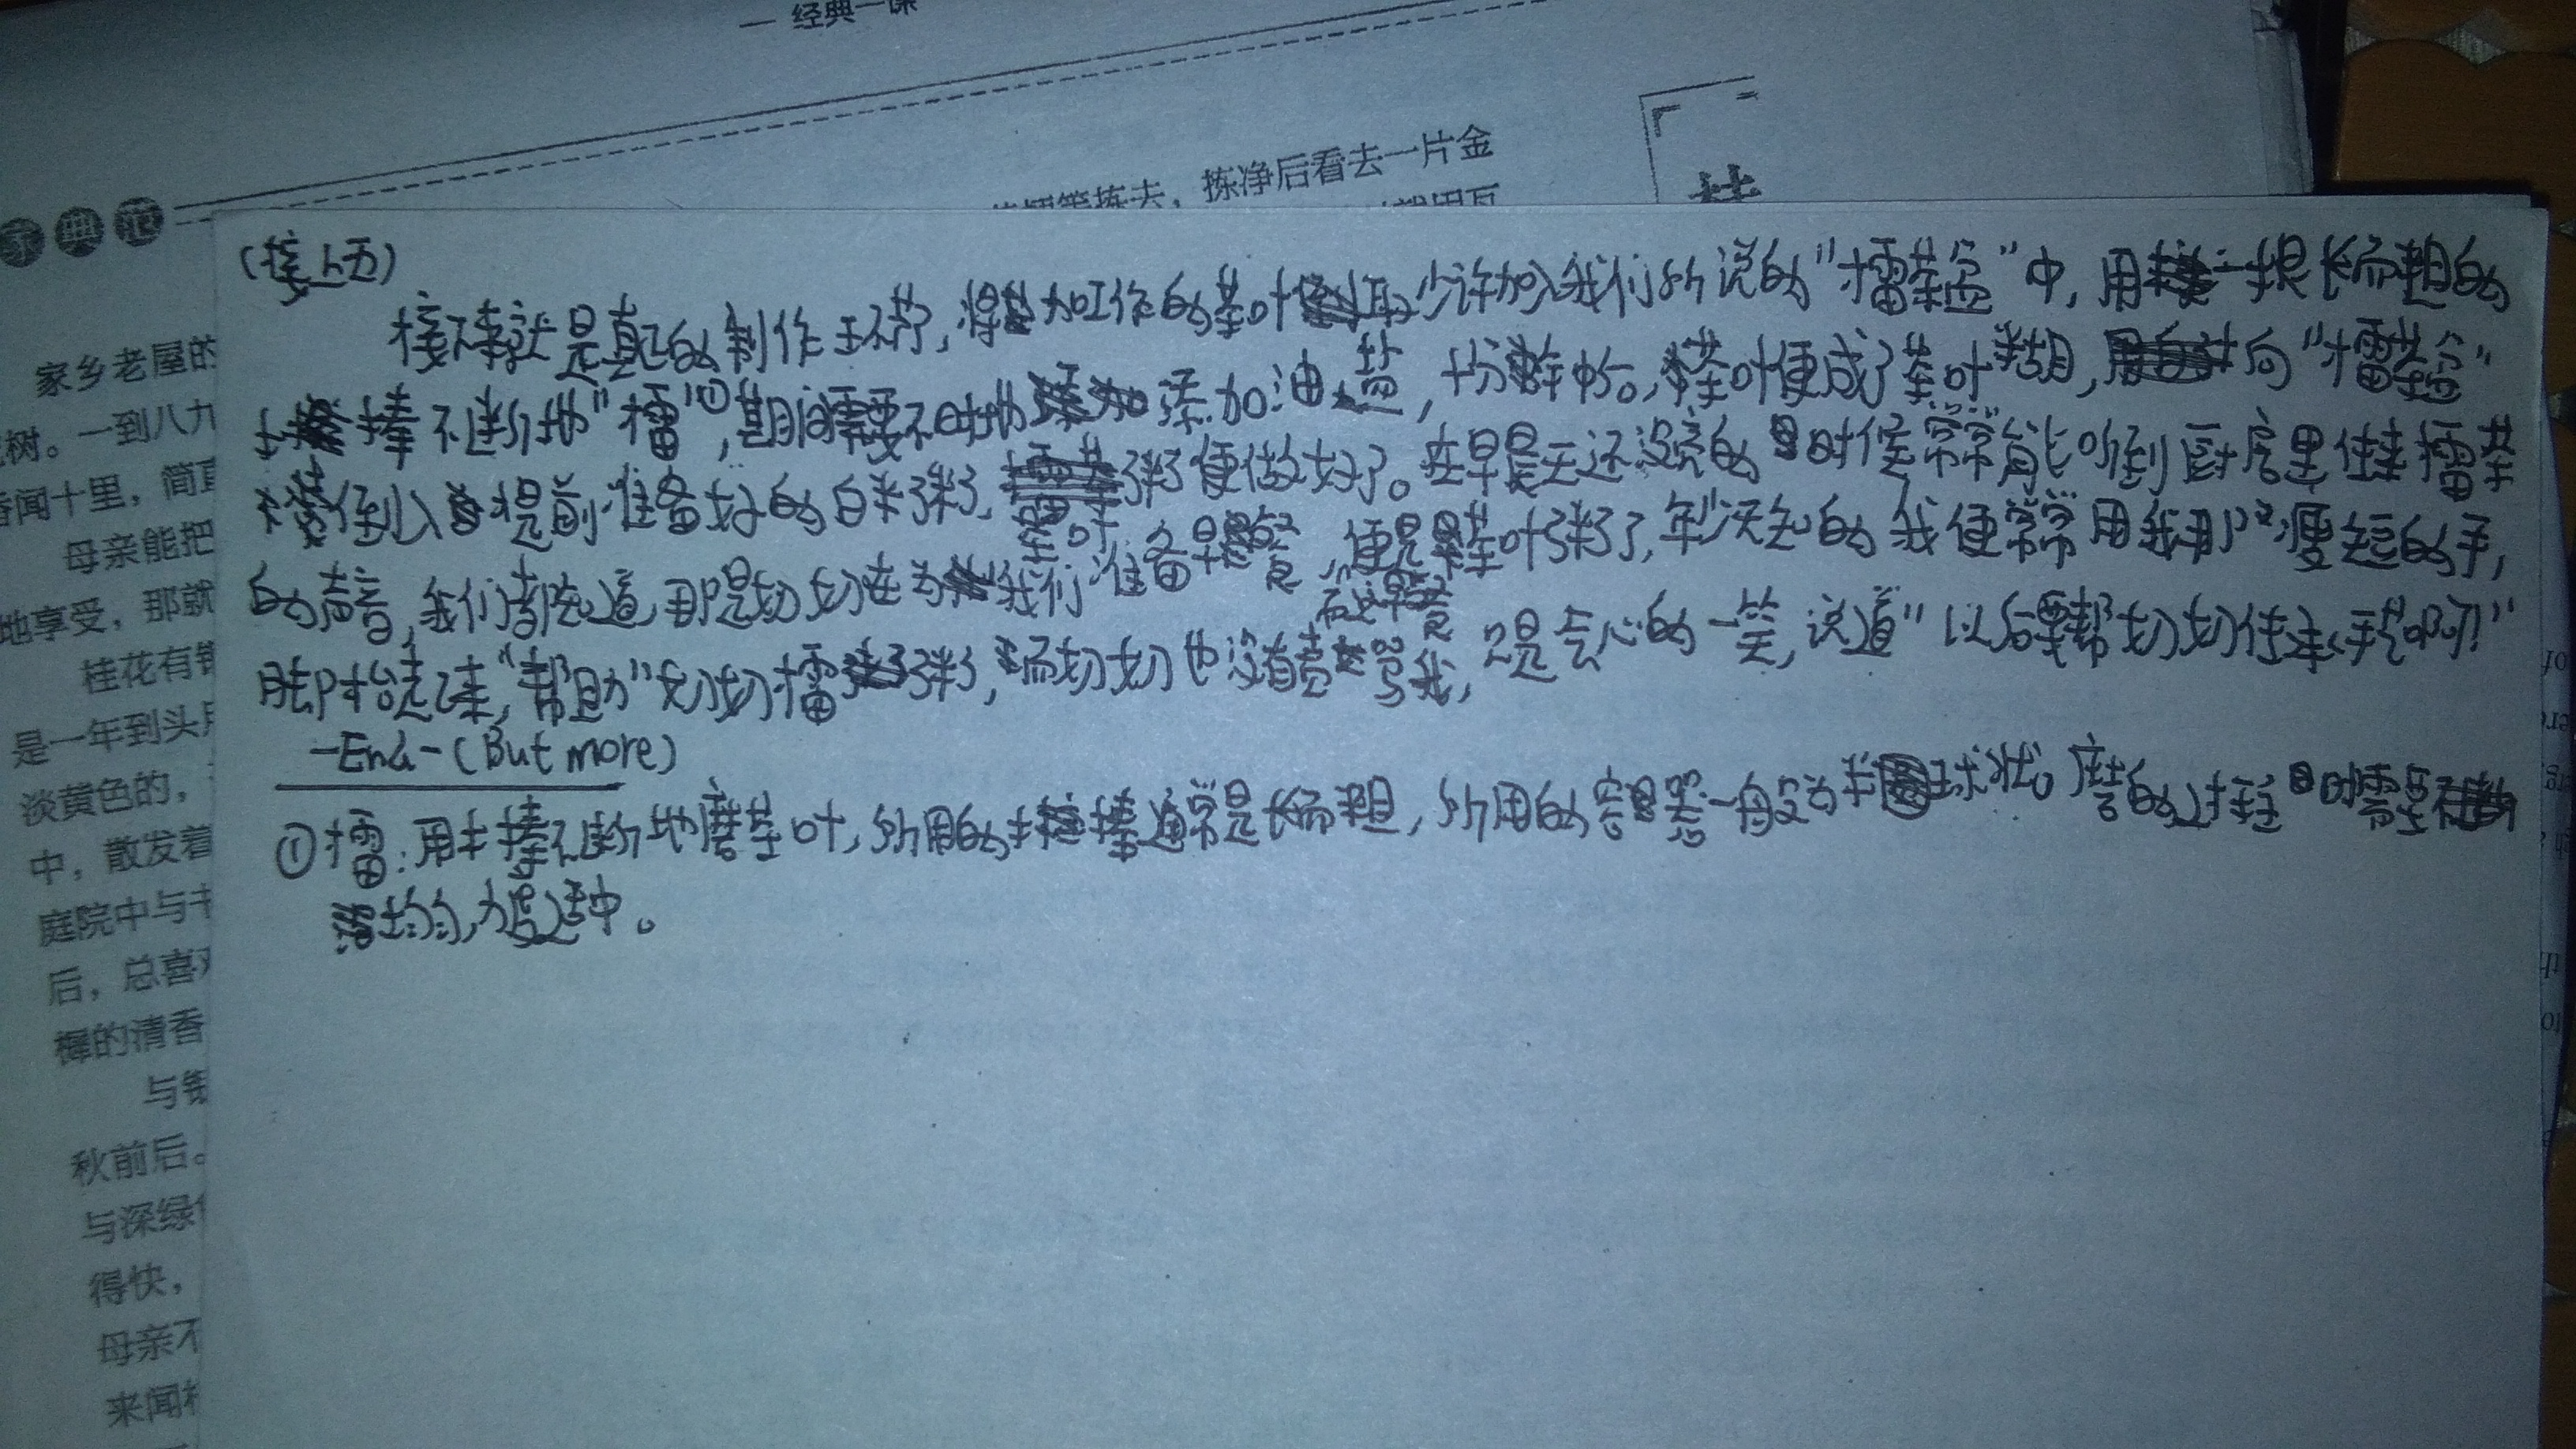 — 经典一课
拣去，拣净后看去一片金
家乡老屋的
树。一到八九
香闻十里，简直
母亲能把
地享受，那就
桂花有
是一年到头
淡黄色的，
中，散发着
庭院中与
后，总喜
樨的清香
与
秋前后。
与深绿
得快，
母亲不
来闻
(接上页)
接下来就是真正的制作环节了，将加工作的茶叶取少许加入我们所说的"擂茶盆"中，用一根长而粗的
木棒不断地"擂"①，期间需要不时地添加油、盐，十分钟中后，茶叶便成了茶叶糊，向"擂茶盆"
倒入提前准备好的白米粥，茶叶粥便做好了。在早晨天还没亮的时候常常能听到厨房里传来擂茶
的声音，我们都知道，那是奶奶在为我们准备早餐，而这早餐便是茶叶粥了，年少无知的我便常常用我那又瘦短的手，
脚抬起来，"帮助"奶奶擂粥，而奶奶也没有责骂我，只是会心的一笑，说道"以后要帮奶奶传承手艺啊！"
-End-(But more)
①擂：用木棒不断地磨茶叶，所用的木棒通常是长而粗，所用的容器一般为半球状。磨的过程时需要
均匀，力度适中。